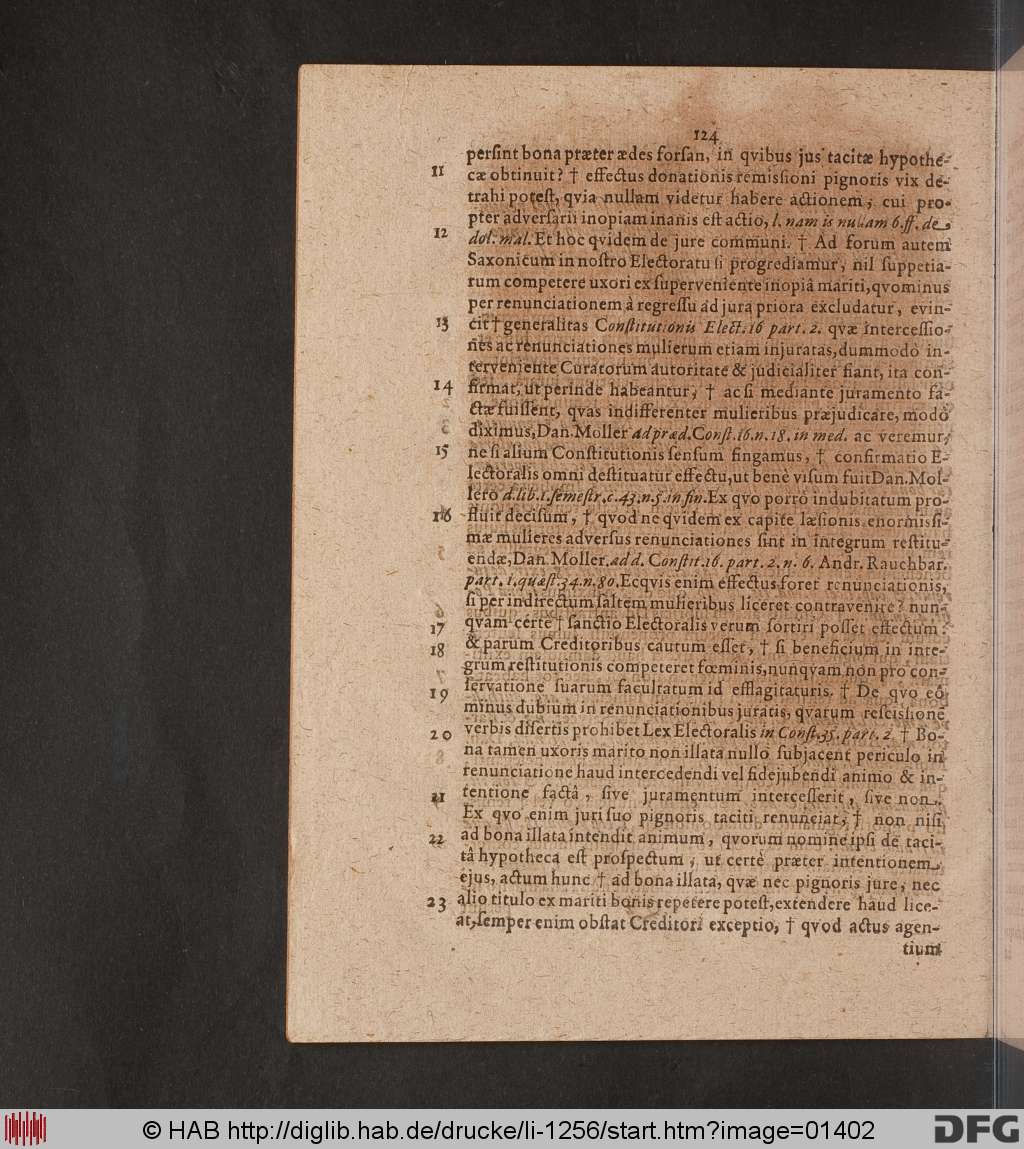 124
perſint bona præter ædes forſan, in qvibus jus tacitæ hypothe-
11 cæ obtinuit? † effectus donationis remiſſioni pignoris vix de-
trahi poteſt, qvia nullam videtur habere actionem, cui pro-
pter adverſarii inopiam inanis eſt actio, l. nam is nullam 6. ff. de
12 dol. mal. Et hoc qvidem de jure communi. † Ad forum autem
Saxonicum in noſtro Electoratu ſi progrediamur, nil ſuppetia-
rum competere uxori ex ſuperveniente inopiâ mariti, qvominus
per renunciationem à regreſſu ad jura priora excludatur, evin-
13 cit † generalitas Conſtitutionis Elect. 16 part. 2. qvæ interceſſio-
nes ac renunciationes mulierum etiam injuratas, dummodò in-
terveniente Curatorum autoritate & judicialiter fiant, ita con-
14 firmat, ut perinde habeantur, † ac ſi mediante juramento fa-
ctæ fuiſſent, qvas indifferenter mulieribus præjudicare, modò
diximus, Dan. Moller ad præd. Conſt. 16. n. 18. in med. ac veremur,
15 ne ſi alium Conſtitutionis ſenſum fingamus, † confirmatio E-
lectoralis omni deſtituatur effectu, ut benè viſum fuit Dan. Mol-
lero d. lib. 1. ſemeſtr. c. 43. n. 5. in fin. Ex qvo porrò indubitatum pro-
16 fluit deciſum, † qvod ne qvidem ex capite læſionis enormiſſi-
mæ mulieres adverſus renunciationes ſint in integrum reſtitu-
endæ, Dan. Moller. ad d. Conſtit. 16. part. 2. n. 6. Andr. Rauchbar.
part. 1. quæſt. 34. n. 80. Ecqvis enim effectus foret renunciationis,
ſi per indirectum ſaltem mulieribus liceret contravenire? nun-
17 qvam certè † ſanctio Electoralis verum ſortiri poſſet effectum:
18 & parum Creditoribus cautum eſſet, † ſi beneficium in inte-
grum reſtitutionis competeret fœminis, nunqvam non pro con-
19 ſervatione ſuarum facultatum id efflagitaturis. † De qvo eò
minus dubium in renunciationibus juratis, qvarum reſciſſione
20 verbis diſertis prohibet Lex Electoralis in Conſt. 35. part. 2. † Bo-
na tamen uxoris marito non illata nullo ſubjacent periculo in
renunciatione haud intercedendi vel fidejubendi animo & in-
21 tentione factâ, ſive juramentum interceſſerit, ſive non.
Ex qvo enim juri ſuo pignoris taciti renunciat, † non niſi
22 ad bona illata intendit animum, qvorum nomine ipſi de taci-
tâ hypotheca eſt proſpectum, ut certè præter intentionem
ejus, actum hunc † ad bona illata, qvæ nec pignoris jure, nec
23 alio titulo ex mariti bonis repetere poteſt, extendere haud lice-
at, ſemper enim obſtat Creditori exceptio, † qvod actus agen-
tium
© HAB http://diglib.hab.de/drucke/li-1256/start.htm?image=01402
DFG